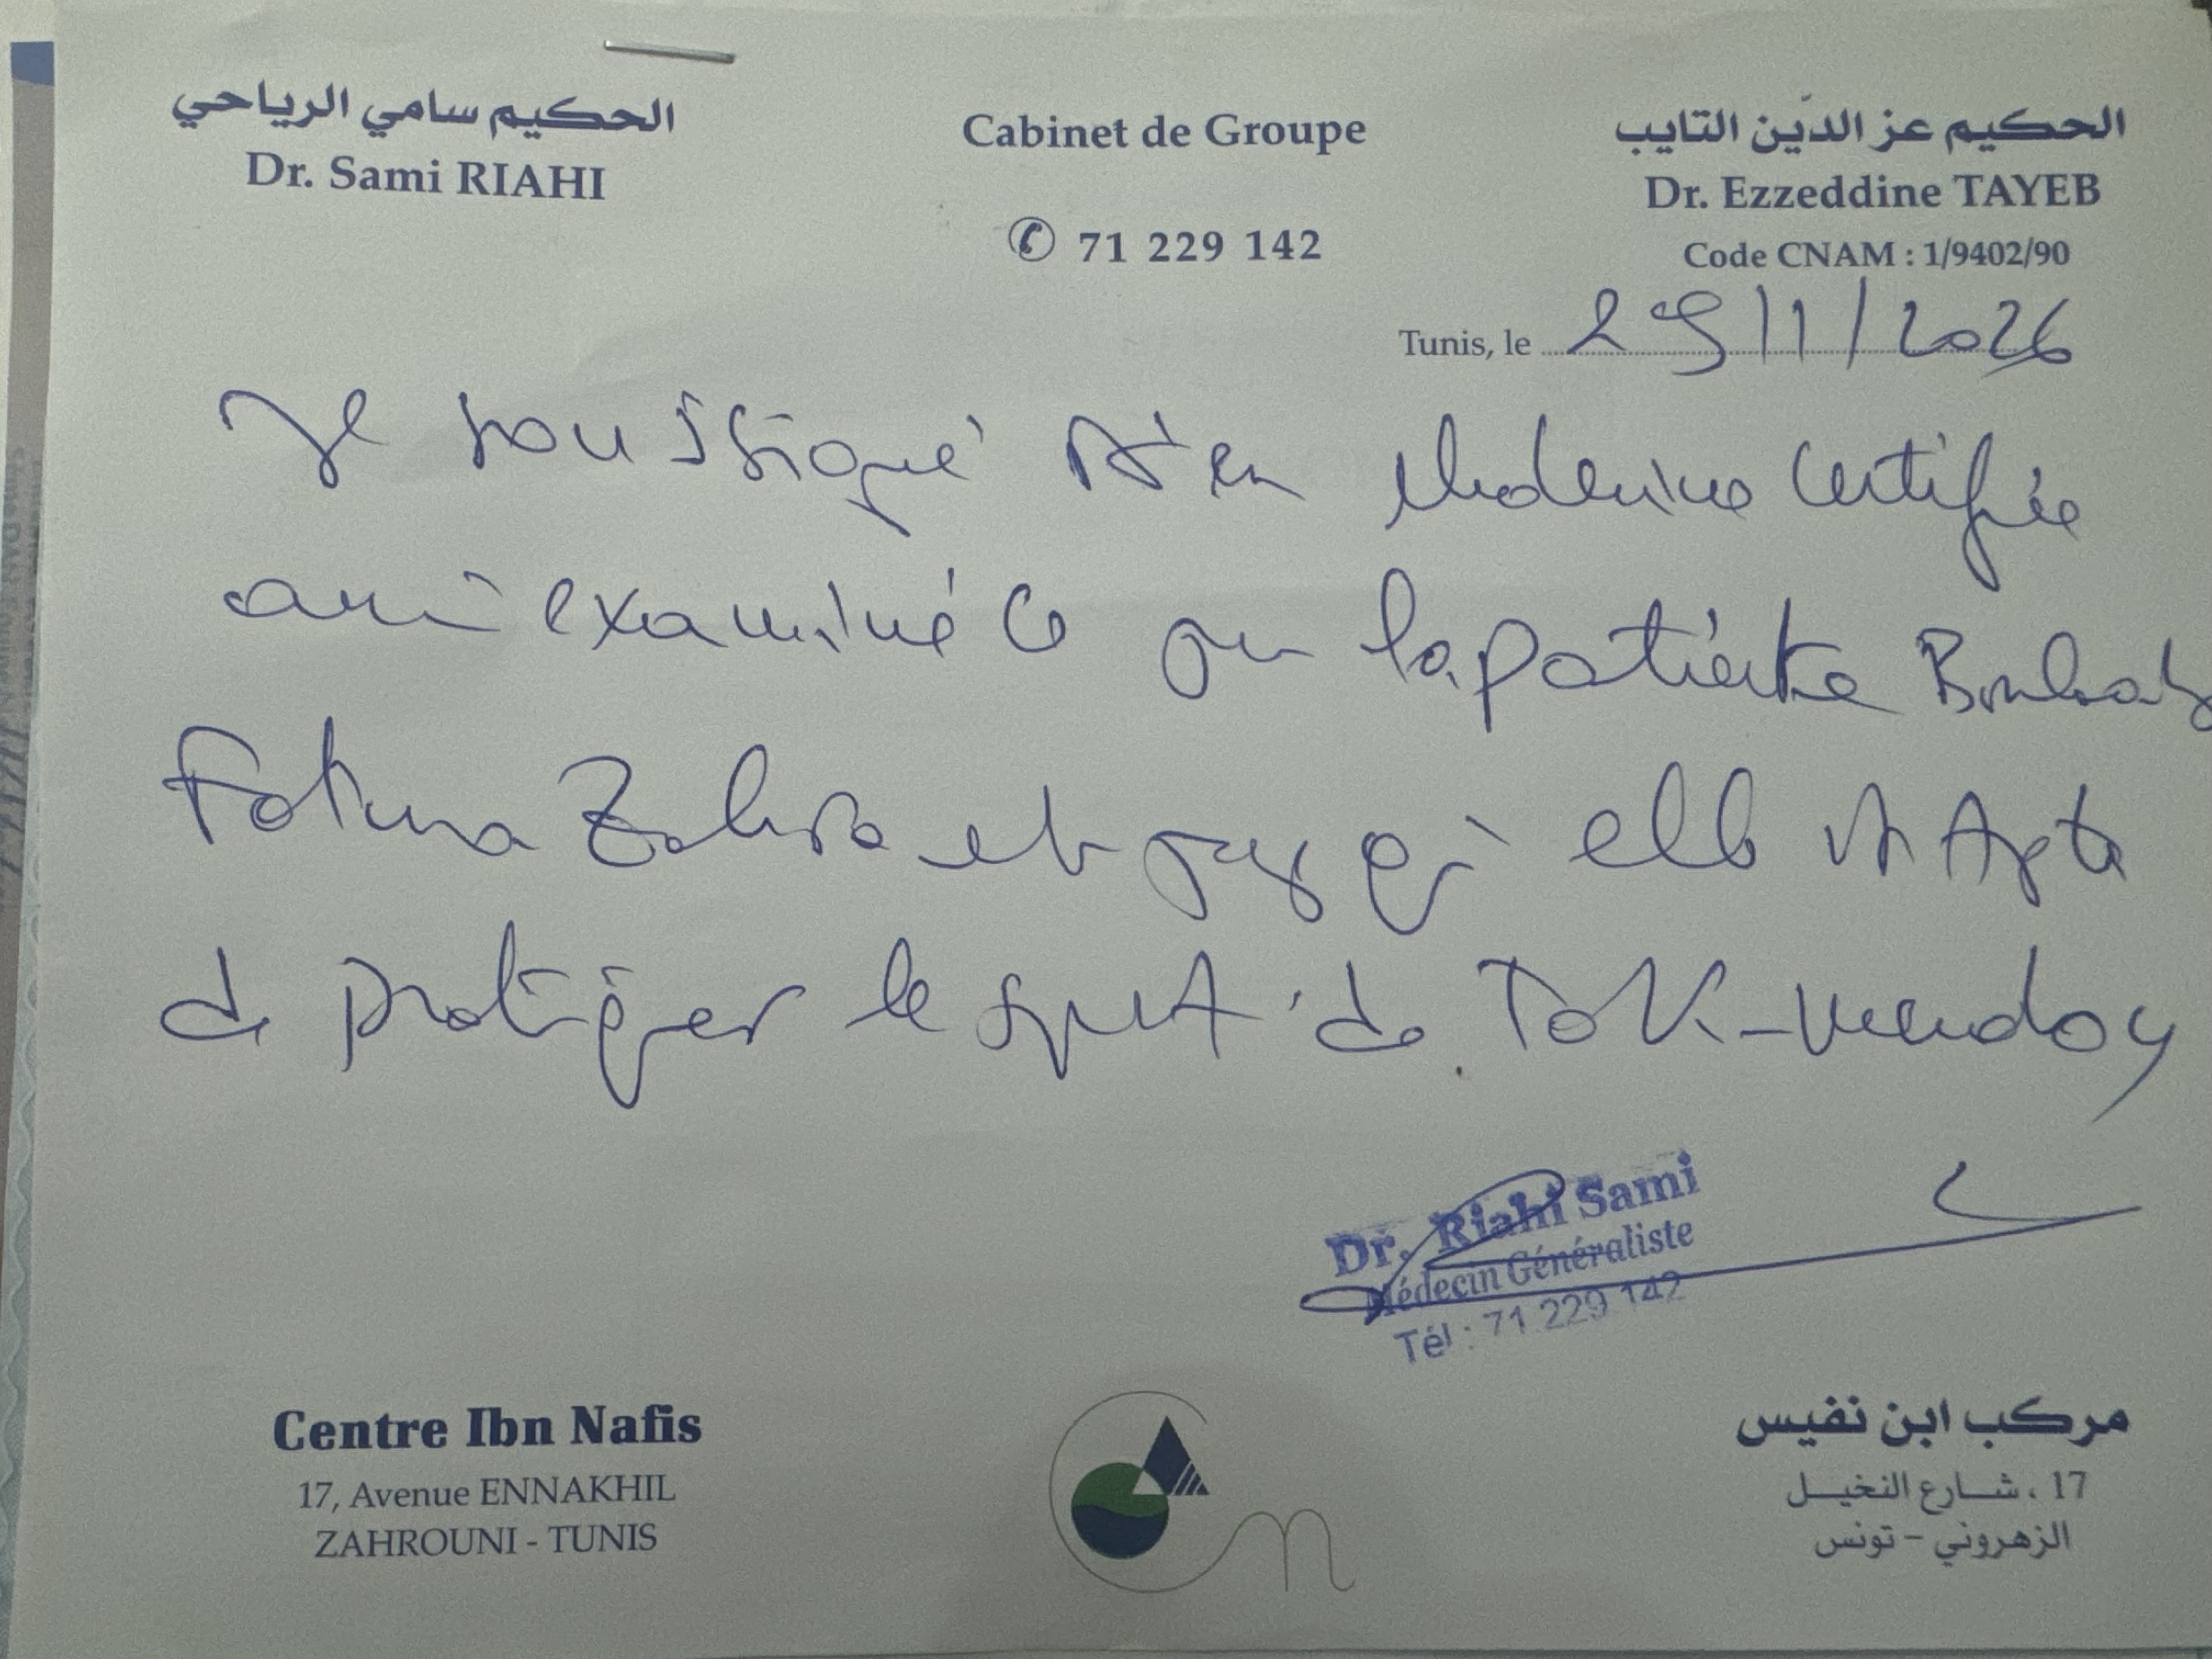 الحكيم سامي الرياحي
Dr. Sami RIAHI
Cabinet de Groupe
✆ 71 229 142
الحكيم عز الدّين التايب
Dr. Ezzeddine TAYEB
Code CNAM : 1/9402/90
Tunis, le 29/1/2026
Je soussigné Dr en Medecine Certifie
avoir examiné ce jour la patiente
Fatma Zahra et jugé qu' elle est Apte
de pratiquer le sport de
Dr. Riahi Sami
Médecin Généraliste
Tél : 71 229 142
Centre Ibn Nafis
17, Avenue ENNAKHIL
ZAHROUNI - TUNIS
مركب ابن نفيس
17 ، شارع النخيل
الزهروني - تونس